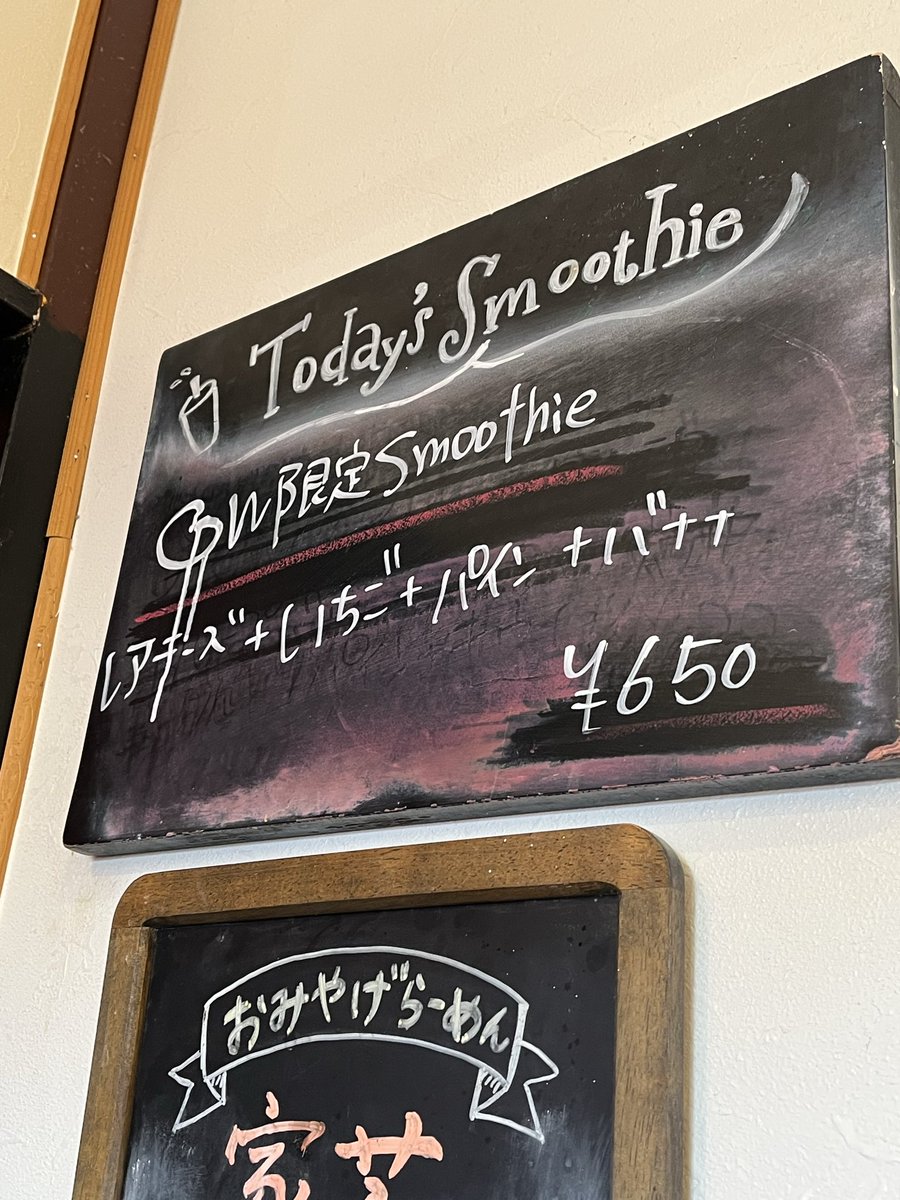 Today's Smoothie
GW限定Smoothie
レアチーズ+いちご+パイン+バナナ
¥650
おみやげらーめん
家